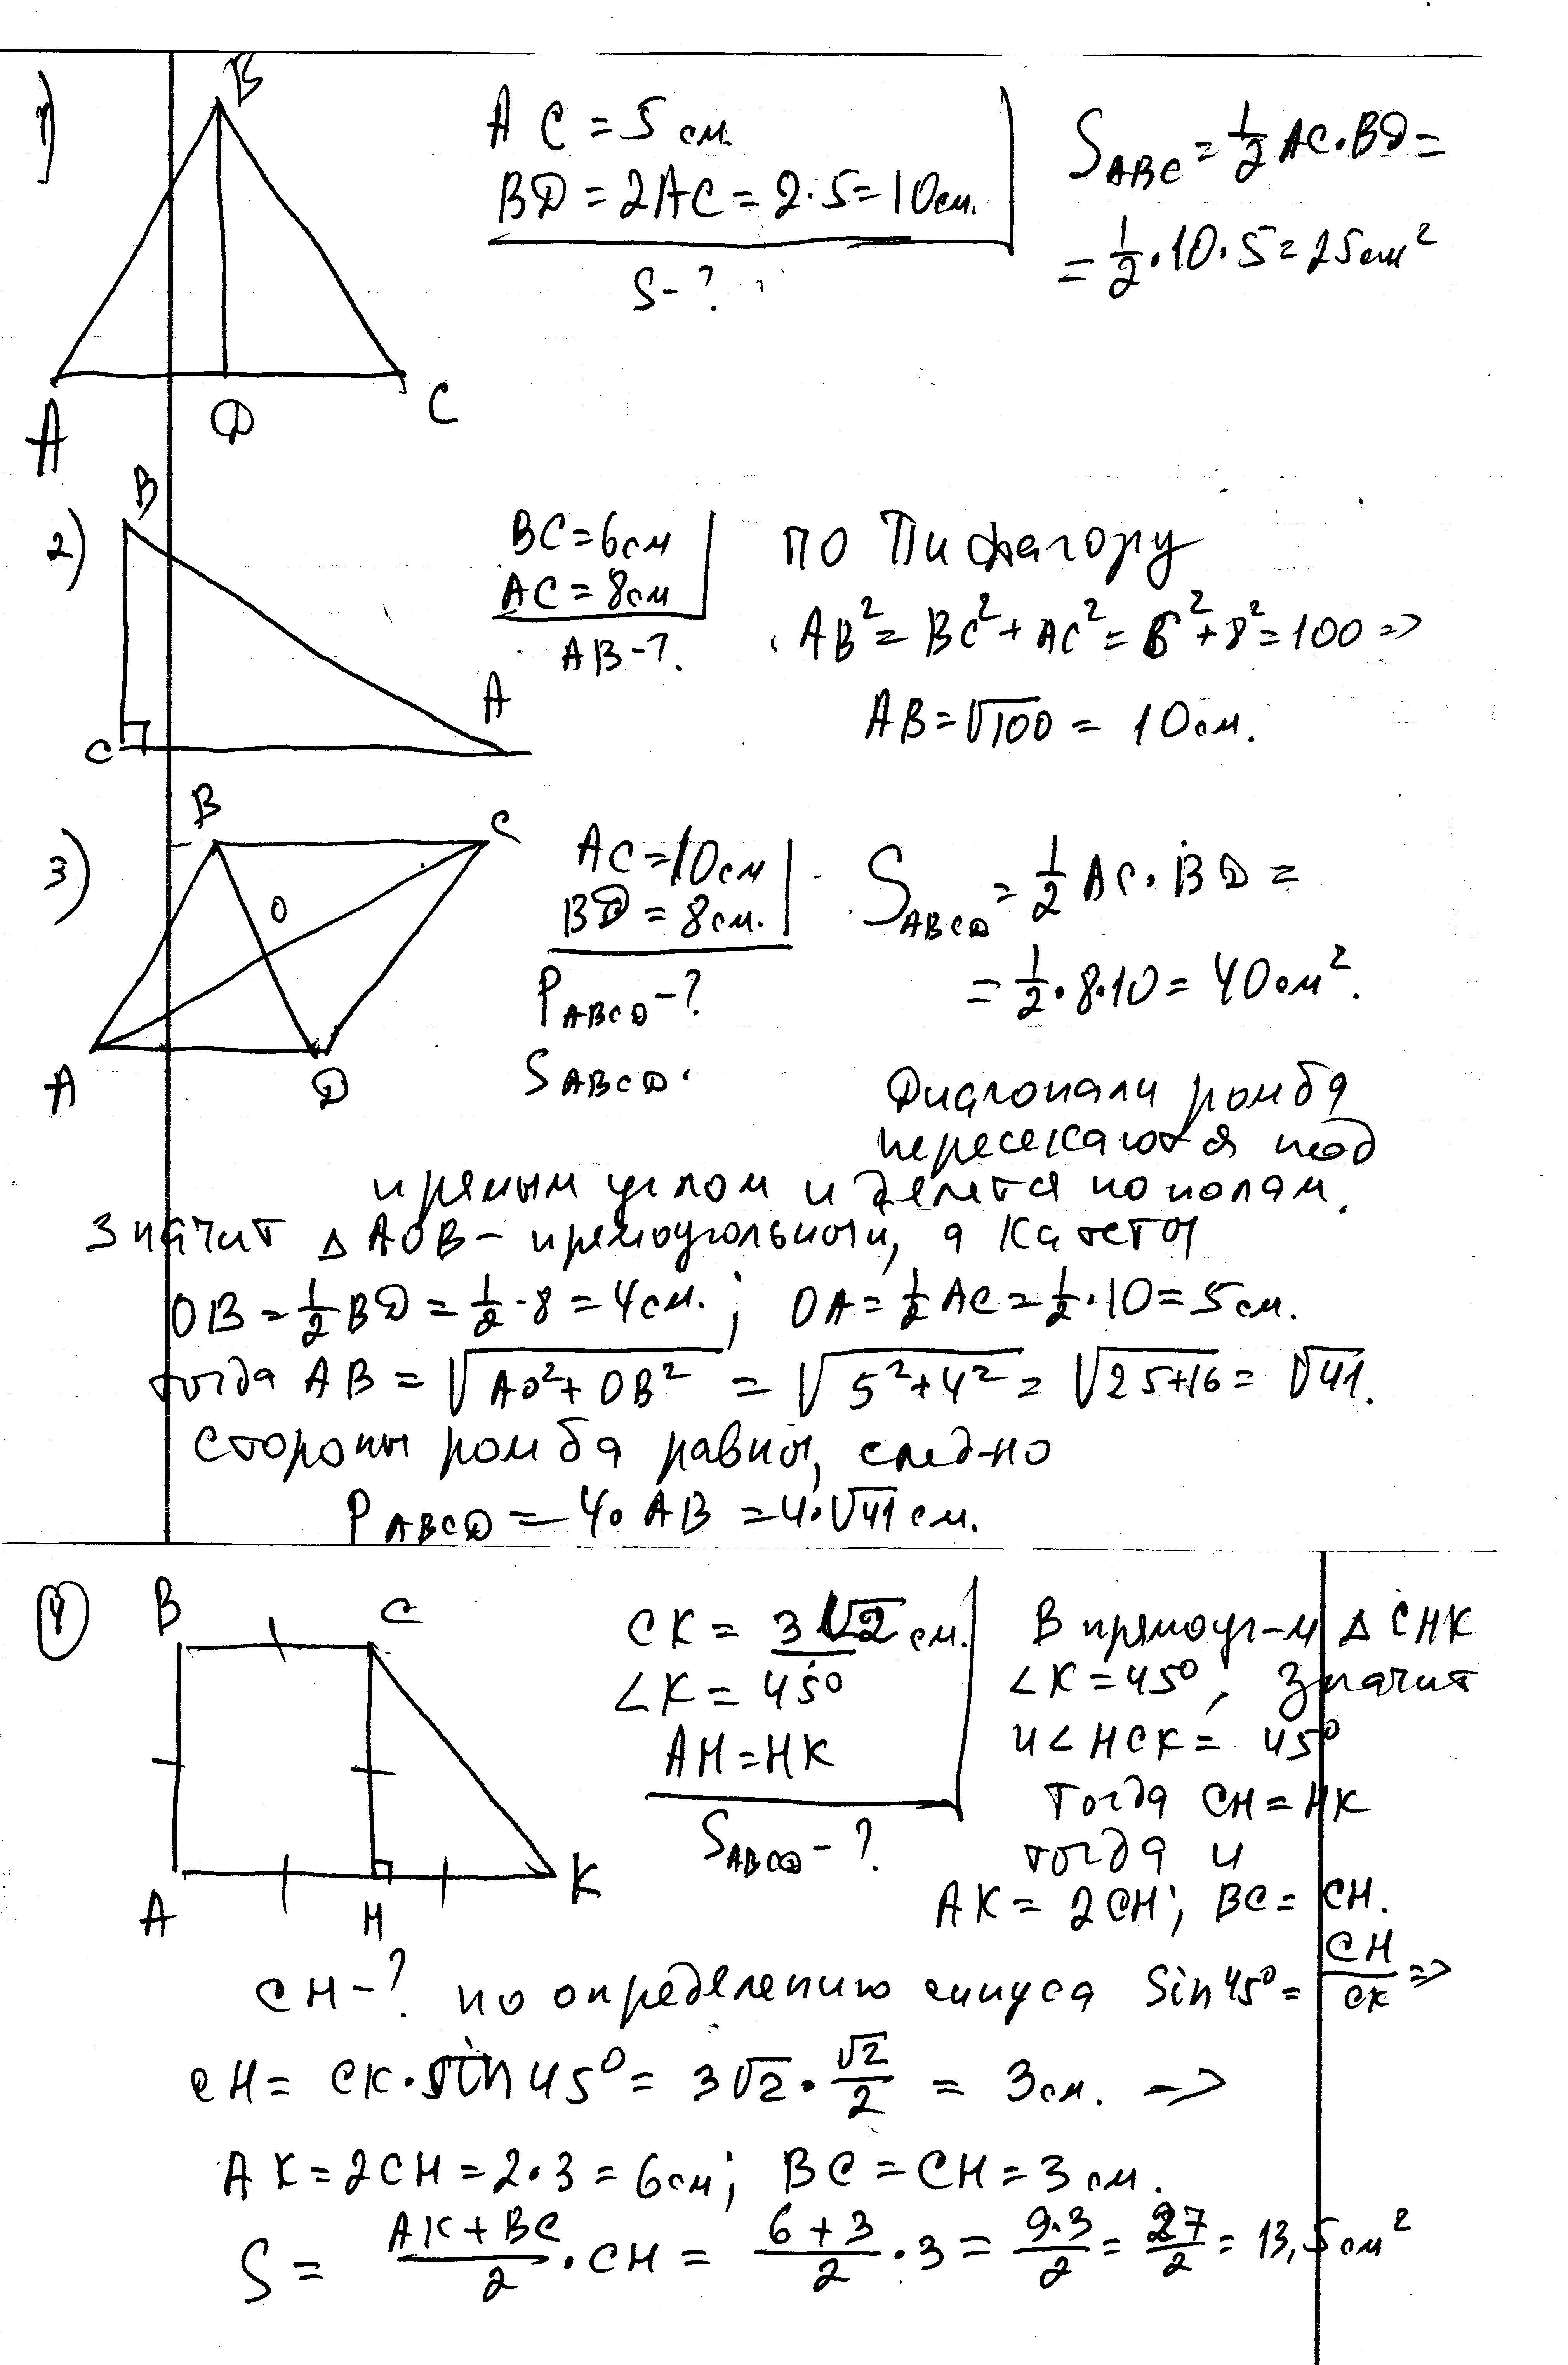 1)
B
A
D
C
AC = 5 см.
BD = 2AC = 2·5 = 10см.
S - ?
S_ABC = 1/2 AC·BD =
= 1/2·10·5 = 25см²
2)
B
C
A
BC = 6см
AC = 8см
AB - ?.
по Пифагору
AB² = BC² + AC² = 6² + 8² = 100 =>
AB = √100 = 10см.
3)
B
C
O
A
D
AC = 10см
BD = 8см.
P_ABCD - ?
S_ABCD.
S_ABCD = 1/2 AC·BD =
= 1/2·8·10 = 40см².
Диагонали ромба
пересекаются под
прямым углом и делятся пополам.
Значит △AOB - прямоугольный, а катеты
OB = 1/2 BD = 1/2·8 = 4см.; OA = 1/2 AC = 1/2·10 = 5см.
тогда AB = √(AO² + OB²) = √(5² + 4²) = √(25+16) = √41.
стороны ромба равны, след-но
P_ABCD = 4·AB = 4·√41 см.
4
B
C
A
H
K
CK = 3√2 см.
∠K = 45°
AH = HK
S_ABCD - ?
В прямоуг-м △CHK
∠K = 45°, значит
и ∠HCK = 45°
Тогда CH = HK
тогда и
AK = 2CH; BC = CH.
CH - ? по определению синуса Sin45° = CH/CK =>
CH = CK·sin45° = 3√2·√2/2 = 3см. =>
AK = 2CH = 2·3 = 6см; BC = CH = 3см.
S = (AK + BC)/2·CH = (6 + 3)/2·3 = 9·3/2 = 27/2 = 13,5см²